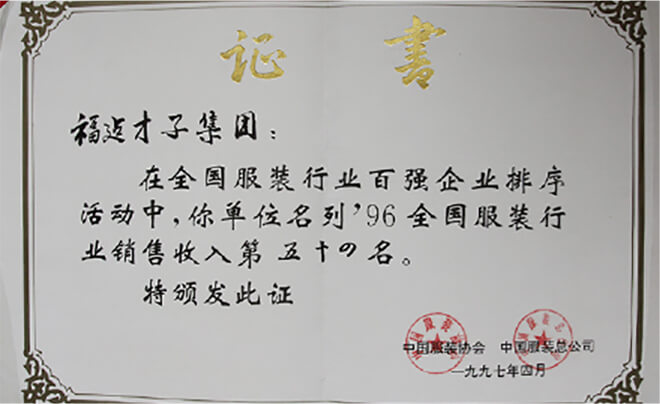 证书
福建才子集团：
在全国服装行业百强企业排序
活动中，你单位名列'96全国服装行
业销售收入第五十四名。
特颁发此证
中国服装协会 中国服装总公司
一九九七年四月